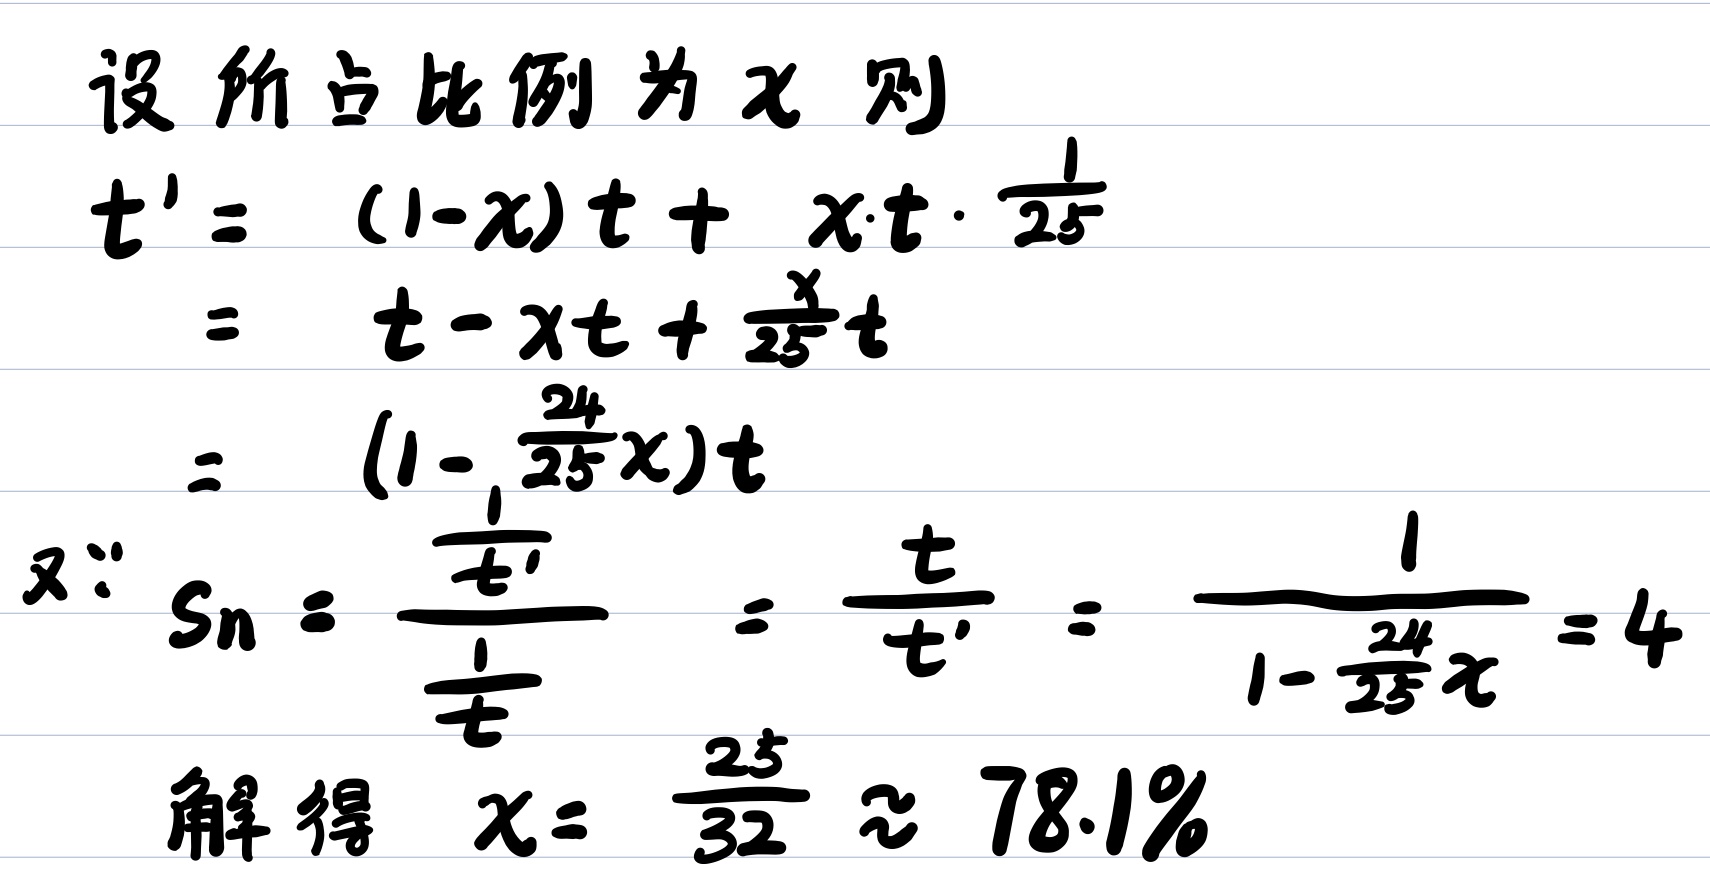 设所占比例为 x 则
t' = (1-x)t + x·t·1/25
= t - xt + x/25 t
= (1 - 24/25 x)t
又∵ Sn = (1/t')/(1/t) = t/t' = 1/(1 - 24/25 x) = 4
解得 x = 25/32 ≈ 78.1%